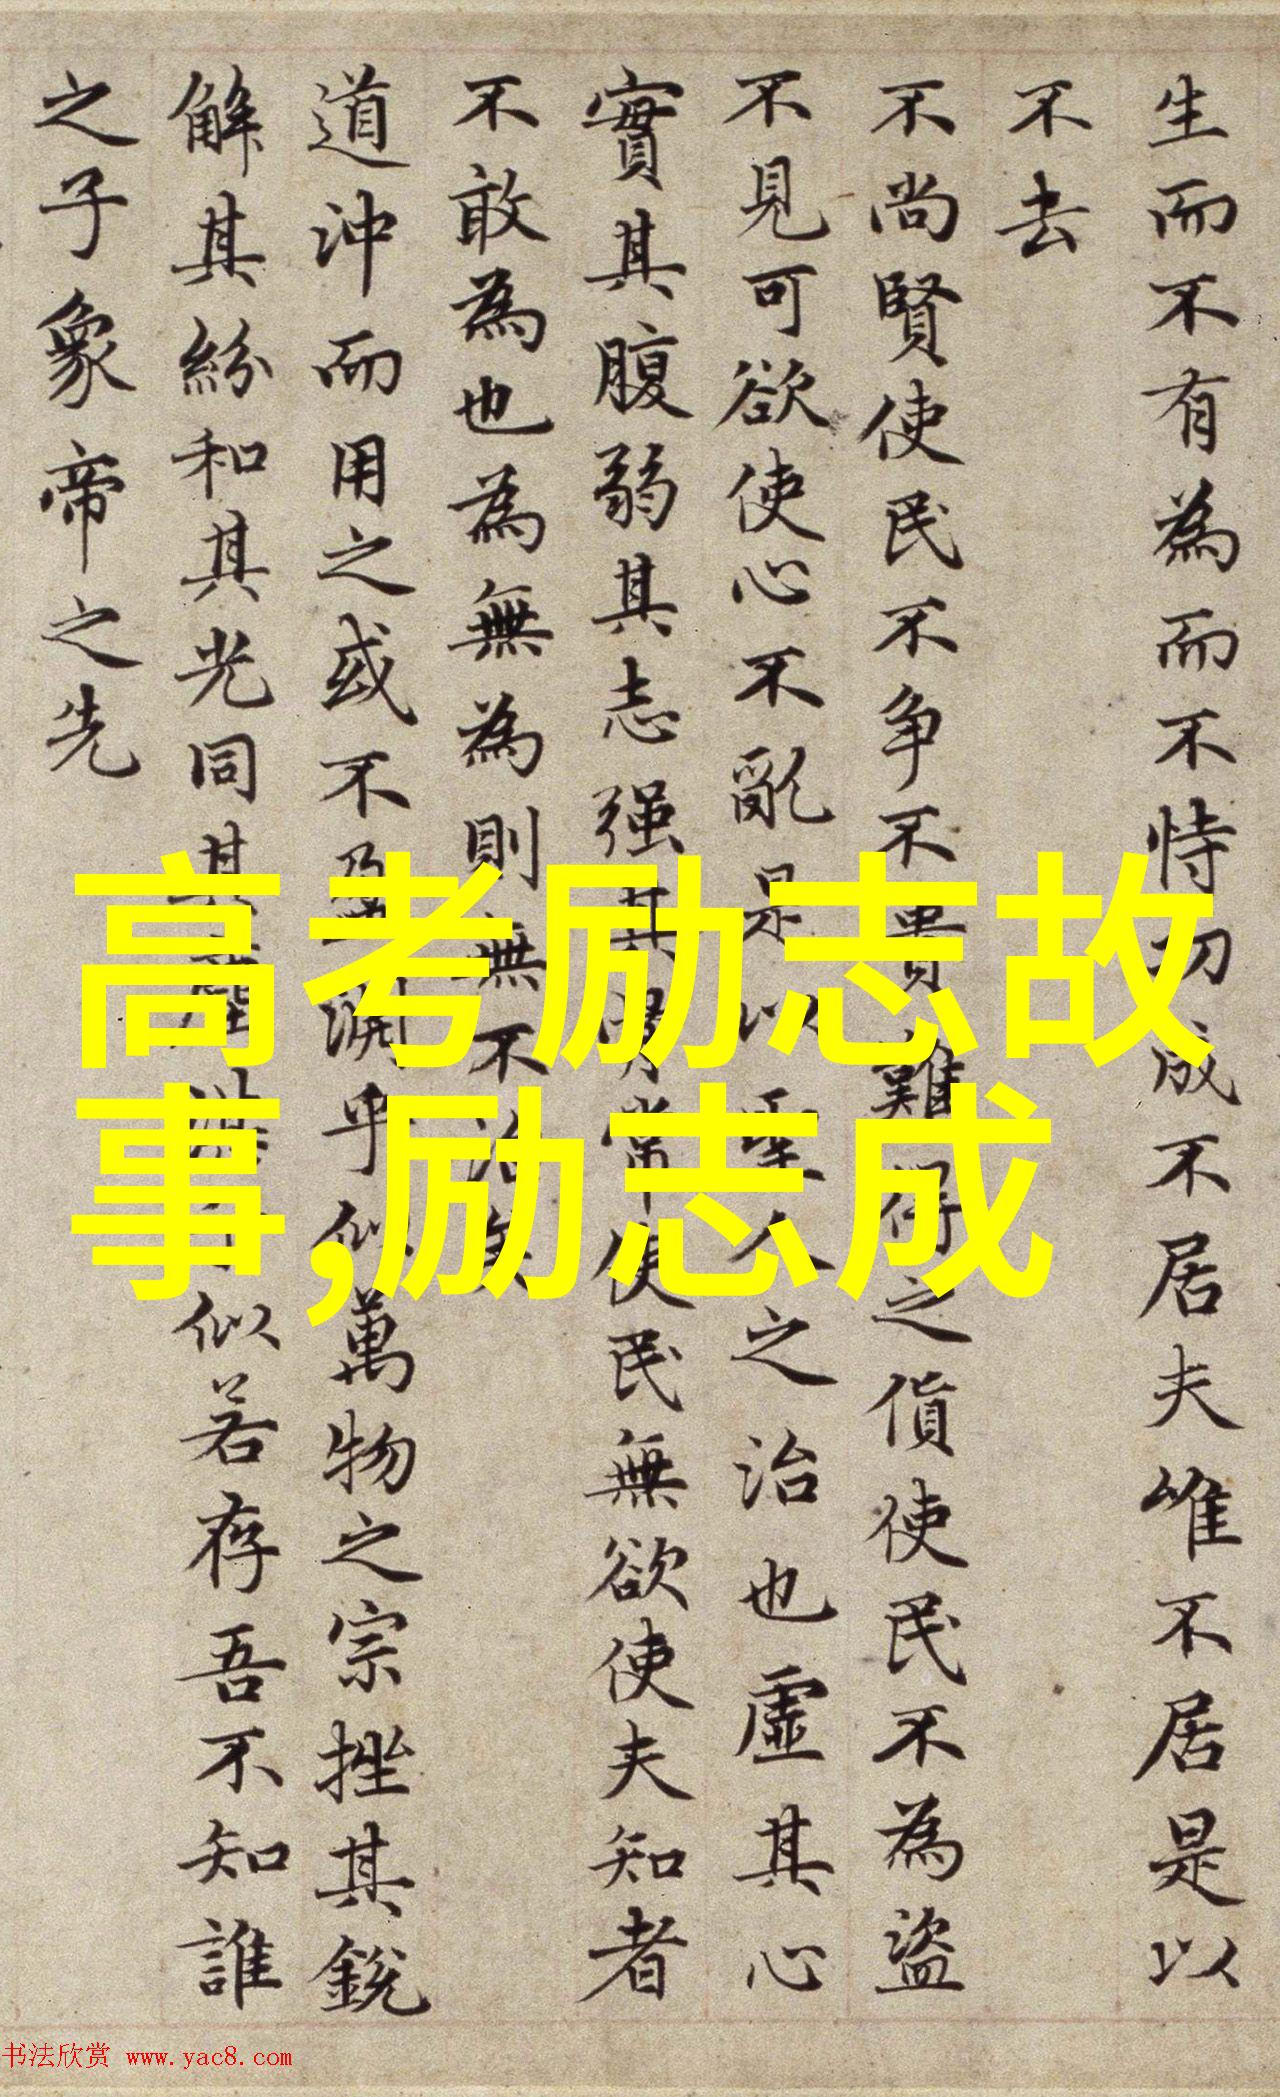 生而不有為而不恃功成不居夫唯不居是以
不去
不尚賢使民不争不貴難得之貨使民不為盗
不見可欲使心不亂是以聖人之治也虛其心
實其腹弱其志强其骨常使民無欲使夫知者
不敢為也為無為則無不治矣
道沖而用之或不盈淵乎似萬物之宗挫其銳
解其紛和其光同其塵湛兮似若存吾不知誰
之子象帝之先
高考励志故
事,励志成
书法欣赏 www.yac8.com